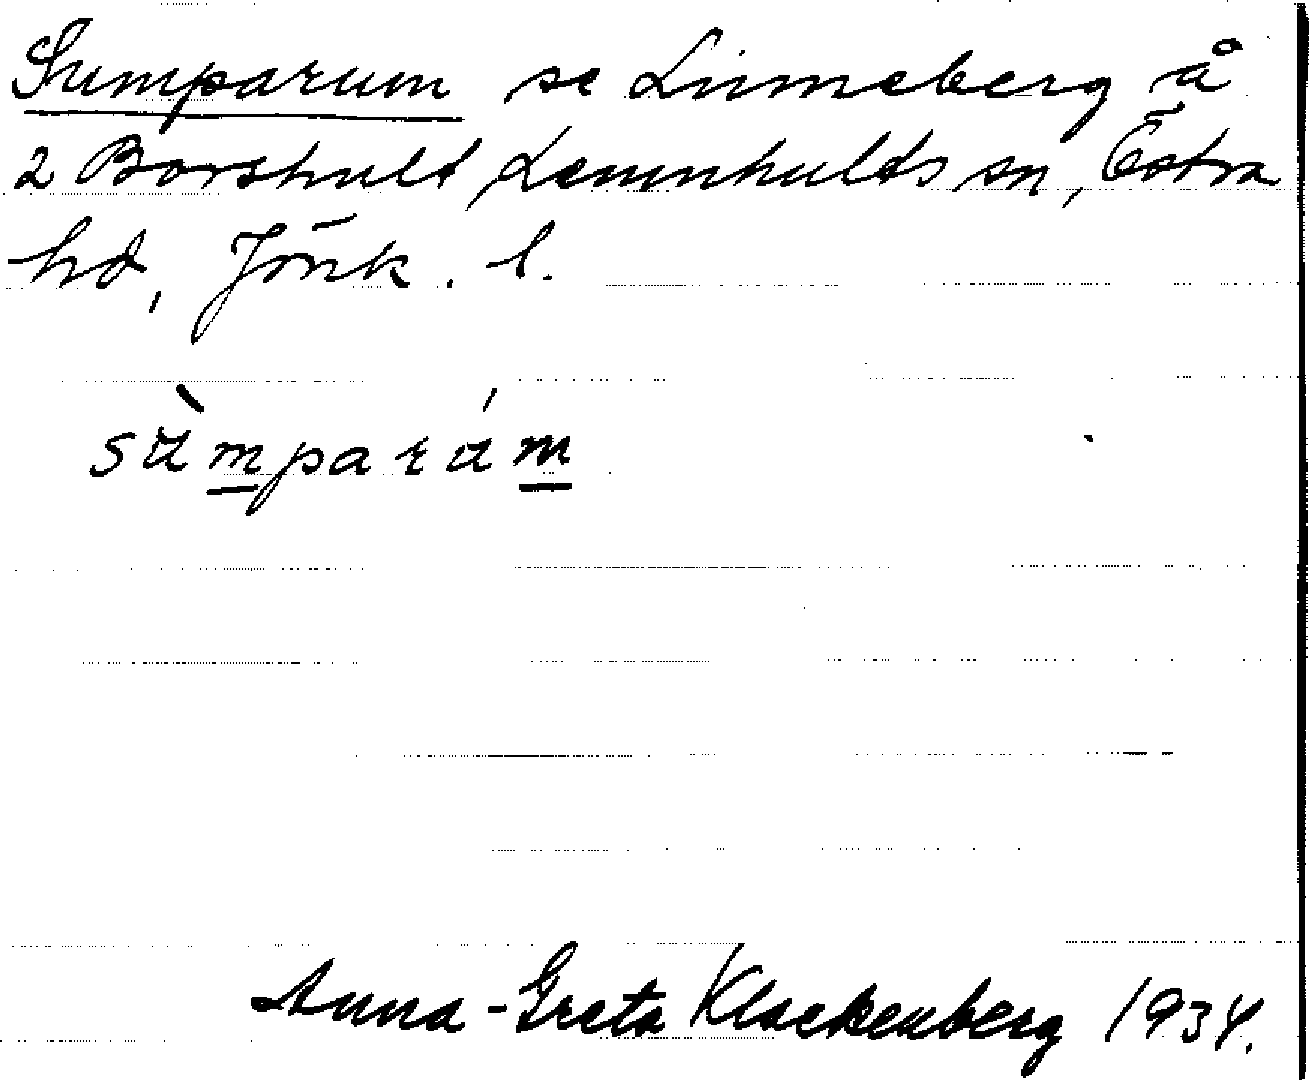 Sumparum se Linneberg å
2 Borshult Lemnhults sn, Östra
hd, Jönk. l.
sùmparúm
Anna-Greta Klackenberg 1934.